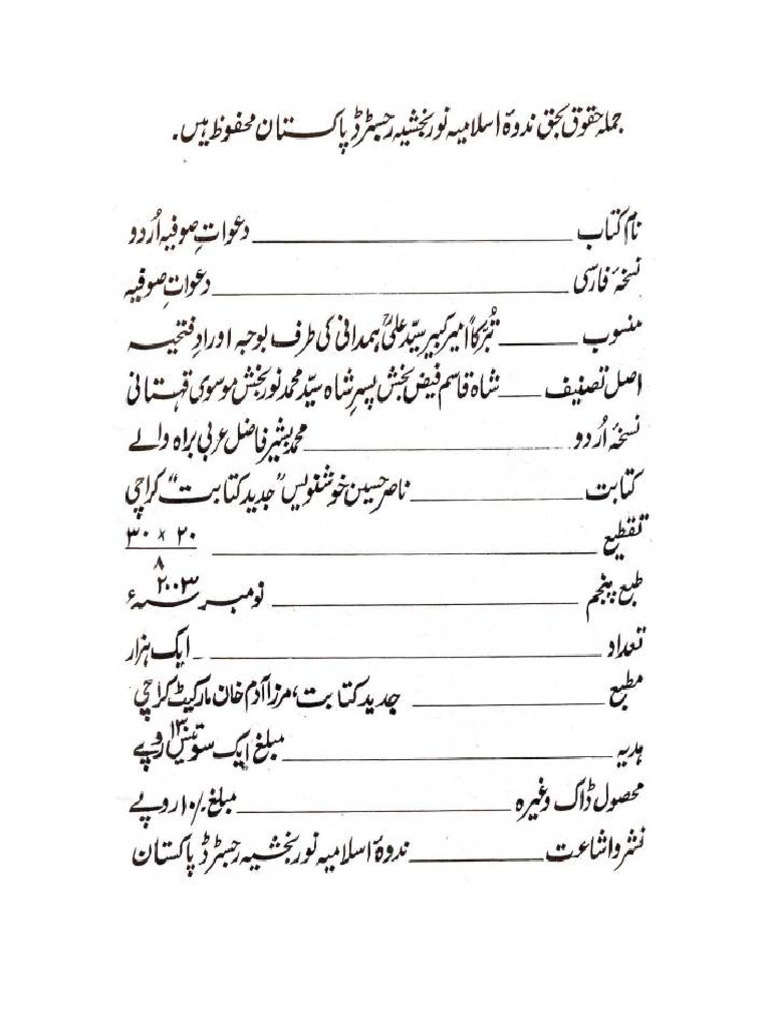 جملہ حقوق بحق ندوۂ اسلامیہ نوربخشیہ رجسٹرڈ پاکستان محفوظ ہیں.
نام کتاب ـــــ دعواتِ صوفیہ اُردو
نسخہٴ فارسی ـــــ دعواتِ صوفیہ
منسوب ـــــ تبرّکاً امیر کبیر سیّد علیؒ ہمدانی کی طرف بوجہ اورادِ فتحیہ
اصل تصنیف ـــــ شاہ قاسم فیض بخش پسرِ شاہ سیّد محمد نور بخش موسوی قہستانی
نسخہٴ اُردو ـــــ محمد بشیر فاضل عربی براہ والے
کتابت ـــــ ناصر حسین خوشنویس "جدید کتابت" کراچی
تقطیع ـــــ ۲۰ × ۳۰ / ۸
طبع پنجم ـــــ نومبر ۲۰۰۳ء
تعداد ـــــ ایک ہزار
مطبع ـــــ جدید کتابت، مرزا آدم خان مارکیٹ کراچی
ہدیہ ـــــ مبلغ ایک سو تیس روپے
محصول ڈاک وغیرہ ـــــ مبلغ ۱۰/ روپے
نشر و اشاعت ـــــ ندوۂ اسلامیہ نوربخشیہ رجسٹرڈ پاکستان